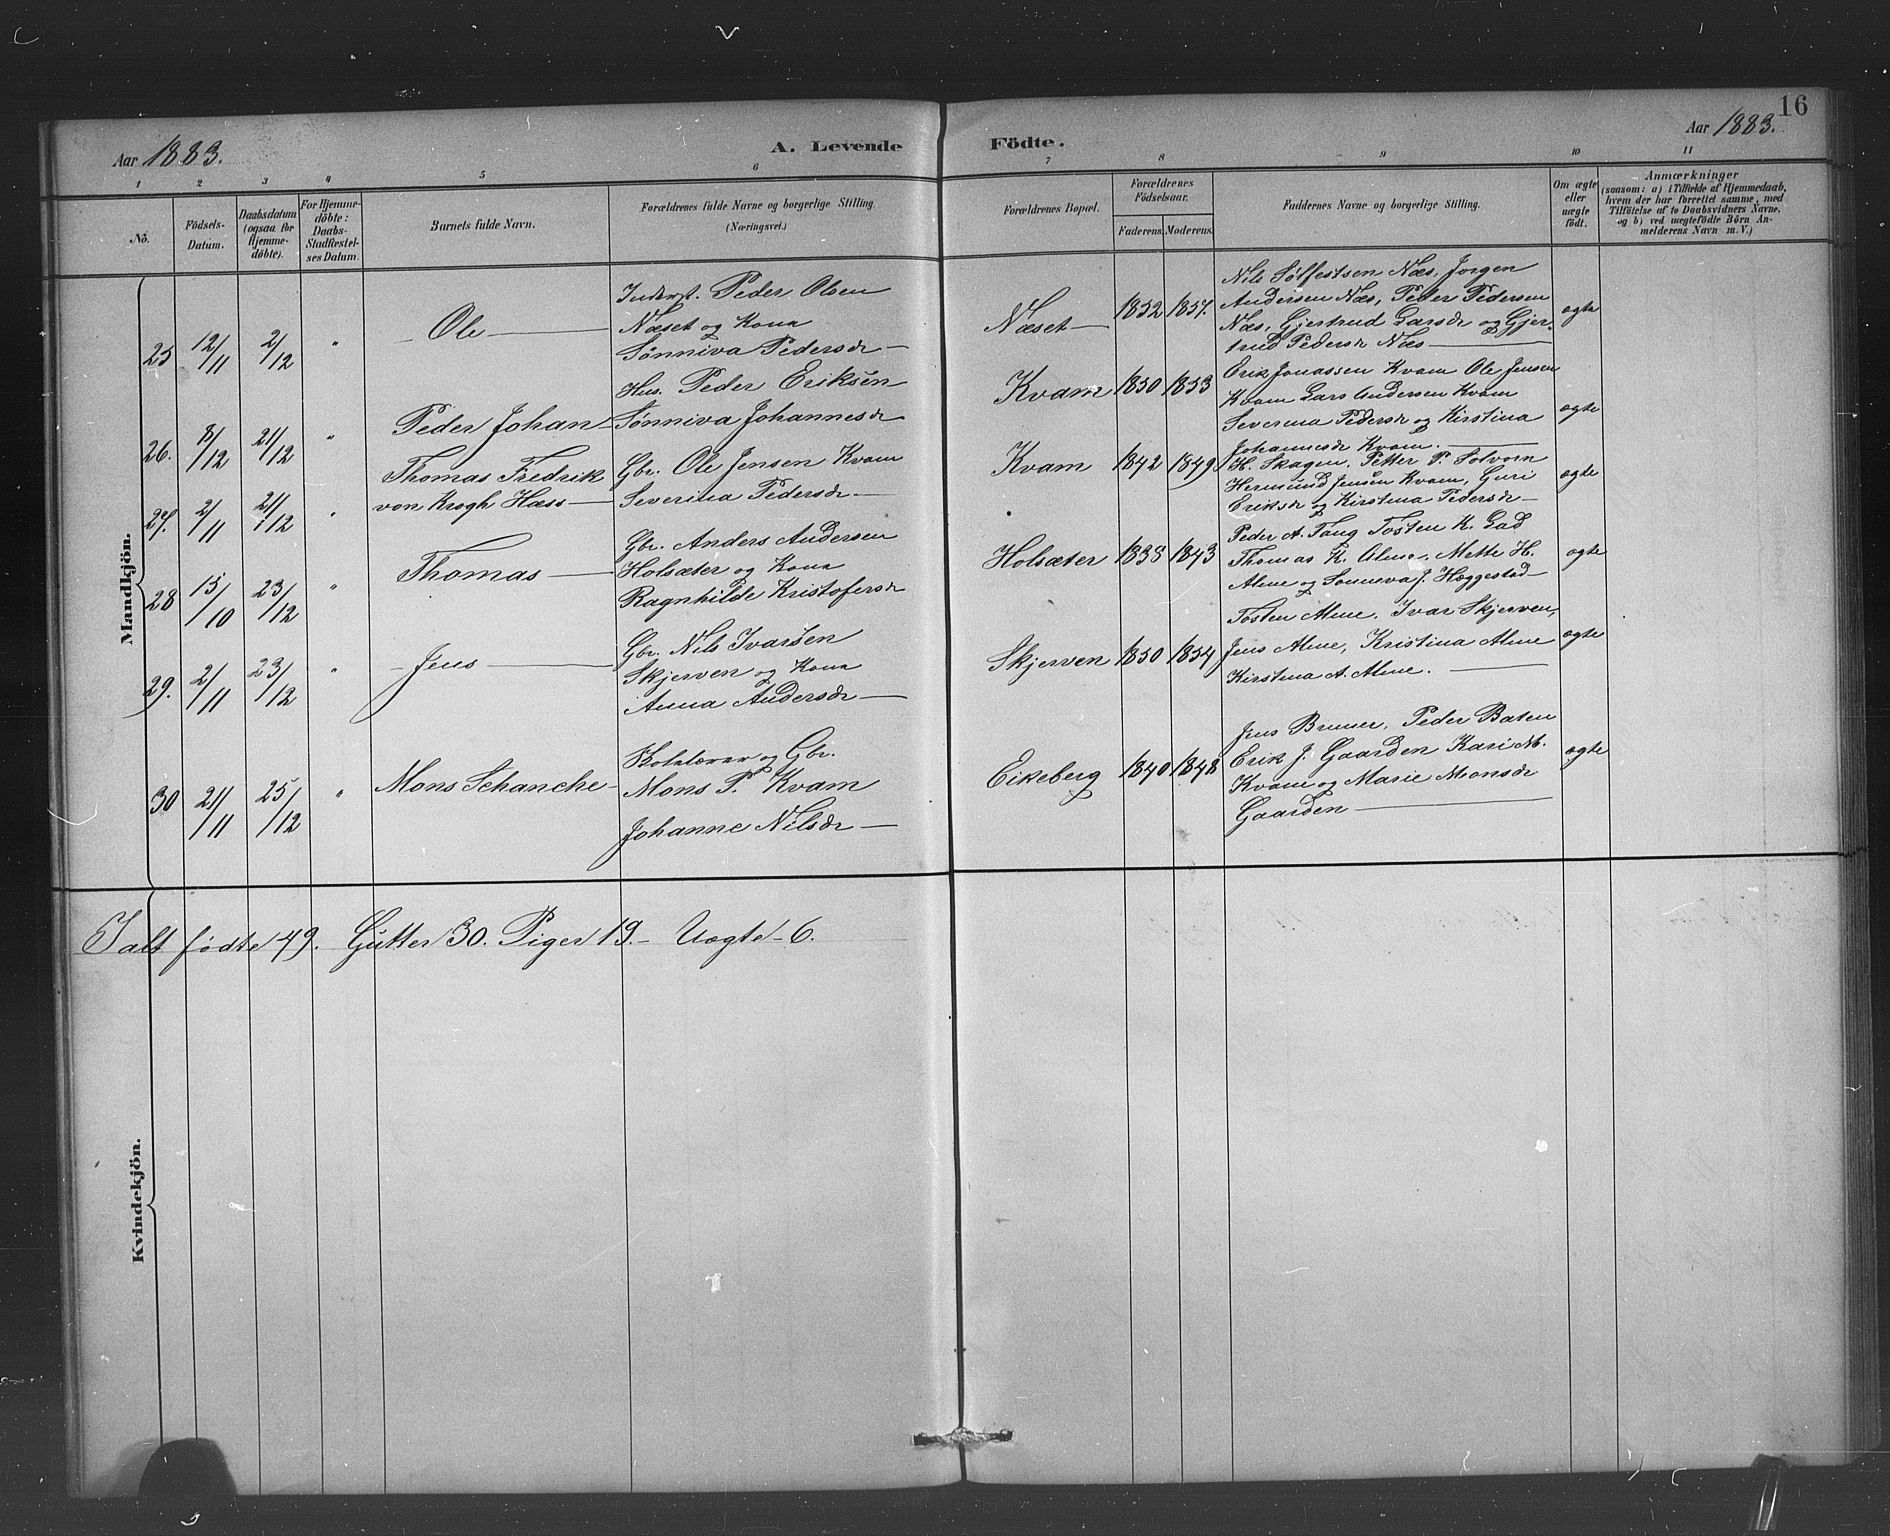 16
Aar 1883.
A. Levende Födte.
Aar 1883.
1 2 3 4 5 6 7 8 9 10 11
No.
Födsels-
Datum.
Daabsdatum
(ogsaa for
Hjemme-
döbte).
For Hjemme-
döbte:
Daabs-
Stadfæstel-
ses Datum.
Barnets fulde Navn.
Forældrenes fulde Navne og borgerlige Stilling.
(Næringsvei.)
Forældrenes Bopæl.
Forældrenes
Födselsaar.
Faderens. Moderens.
Faddernes Navne og borgerlige Stilling.
Om ægte
eller
uægte
født.
Anmærkninger
(saasom: a) i Tilfælde af Hjemmedaab,
hvem der har forrettet samme, med
Tilföielse af to Daabsvidners Navne.
og b) ved uægtefödte Börn An-
melderens Navn m. V.)
Mandkjön.
25 12/11 2/12 " Ole
Inderst. Peder Olsen
Næset og Kona
Sønniva Pedersdr
Næset 1852 1857.
Nils Sølfestsen Næs, Jørgen
Andersen Næs, Peder Pedersen
Næs, Gjertrud Larsdr og Gjer-
trud Pedersdr Næs
ægte
26. 8/12 21/12 " Peder Johan
Hus. Peder Eriksen
Sønniva Johannesdr
Kvam 1850 1853
Erik Jonassen Kvam Ole Jensen
Kvam Lars Andersen Kvam
Severina Pedersdr og Kirstina
Johannesdr Kvam.
ægte
27. 2/11 21/12 " Thomas Fredrik
von Krogh Hæss
Gbr. Ole Jensen Kvam
Severina Pedersdr.
Kvam 1842 1849
H. Skagen, Petter P. Solvorn
Hermund Jensen Kvam, Guri
Eriksdr og Kirstina Pedersdr
ægte
28 15/10 23/12 " Thomas
Gbr. Anders Andersen
Holsæter og Kona
Ragnhilde Kristofersdr
Holsæter 1838 1843
Peder A. Fang Tosten K. Lad
Thomas K. Alme, Mette H.
Alme og Sonneva J. Hæggestad
ægte
29. 2/11 23/12 " Jens
Gbr. Nils Ivarsen
Skjerven og Kona
Anna Andersdr
Skjerven 1850 1854
Tosten Alme, Ivar Skjerven,
Jens Alme, Kristina Alme
Kirstina A. Alme.
ægte
30 21/11 25/12 " Mons Schanche
og Gbr.
Mons P. Kvam
Johanne Nilsdr
Eikeberg 1840 1848
Jens Bruner, Peder Baten
Erik J. Gaarden Kari M.
Kvam og Marie Monsdr
Gaarden
ægte
Ialt fødte 49. Gutter 30. Piger 19. Uægte 6.
Kvindekjön.